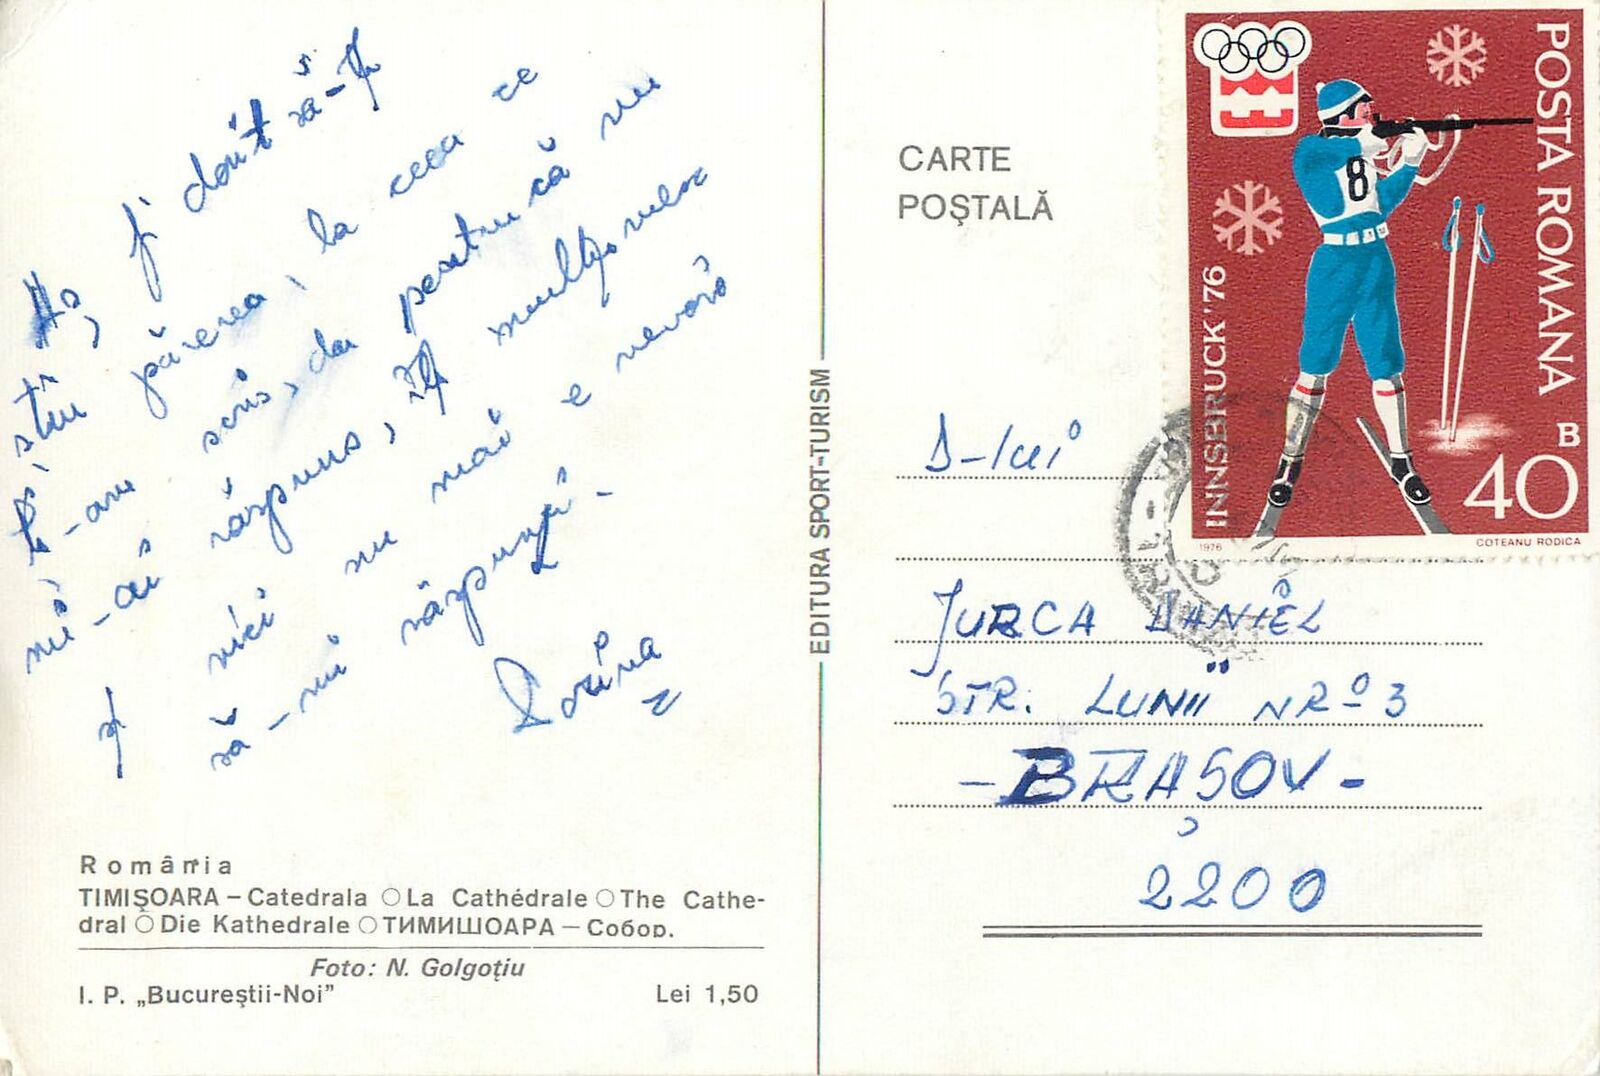 Aș fi dorit să-ți
știu părerea, la ceea ce
ți-am scris, dar pentru că nu
mi-ai răspuns, îți mulțumesc
și nici nu mai e nevoie
să-mi răspunzi.
Dorina
România
TIMIŞOARA – Catedrala ○ La Cathédrale ○ The Cathe-
dral ○ Die Kathedrale ○ ТИМИШОАРА – Собор.
Foto: N. Golgoţiu
I. P. „Bucureştii-Noi”
Lei 1,50
EDITURA SPORT-TURISM
CARTE
POŞTALĂ
POSTA ROMANA
INNSBRUCK '76
8
40 B
1976
COTEANU RODICA
D-lui
JURCA DANIEL
STR. LUNII NR º 3
- BRAȘOV -
2200